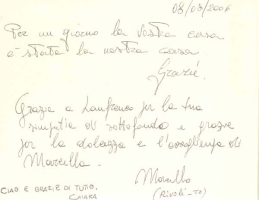 08/08/2006
Per un giorno la vostra casa
è stata la nostra casa.
Grazie.
Grazie a Lanfranco per la tua
simpatia di sottofondo e grazie
per la dolcezza e l'accoglienza di
Marcella.
Morello
(Rivoli - TO)
CIAO E GRAZIE DI TUTTO,
CHIARA